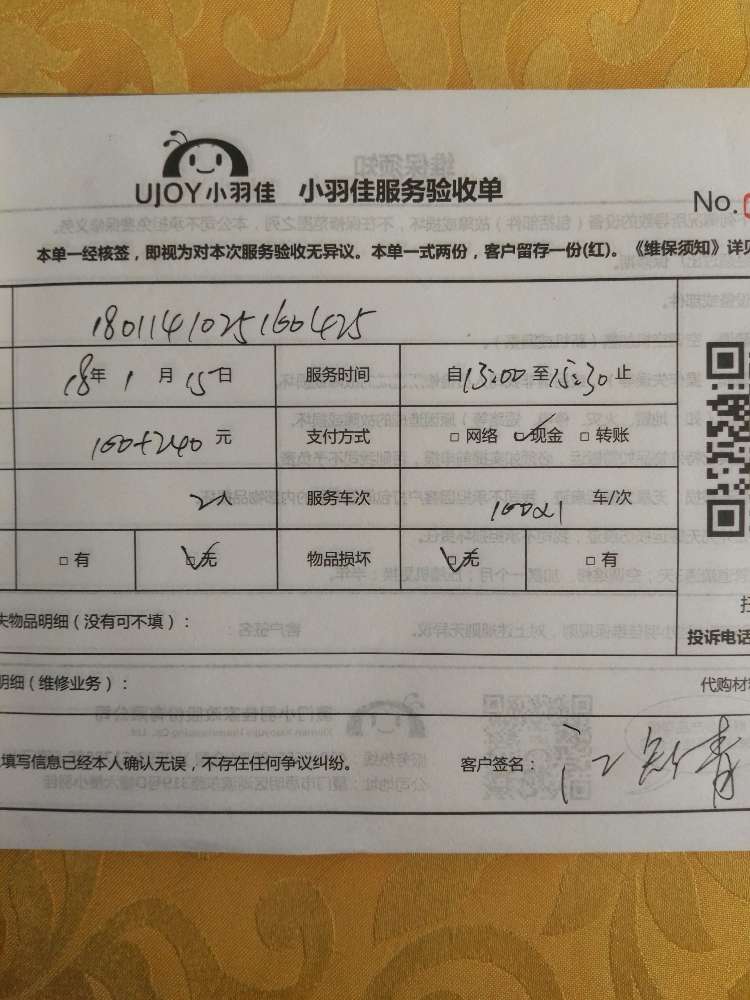 UJOY小羽佳 小羽佳服务验收单
No.
本单一经核签，即视为对本次服务验收无异议。本单一式两份，客户留存一份(红)。《维保须知》详见
1801141025160425
18年 1 月 15日 服务时间 自13:00至15:30止
160+240 元 支付方式 □ 网络 □现金 □ 转账
2人 服务车次 160×1 车/次
□ 有 □无 物品损坏 □无 □ 有
失物品明细（没有可不填）：
投诉电话
明细（维修业务）： 代购材
填写信息已经本人确认无误，不存在任何争议纠纷。 客户签名：